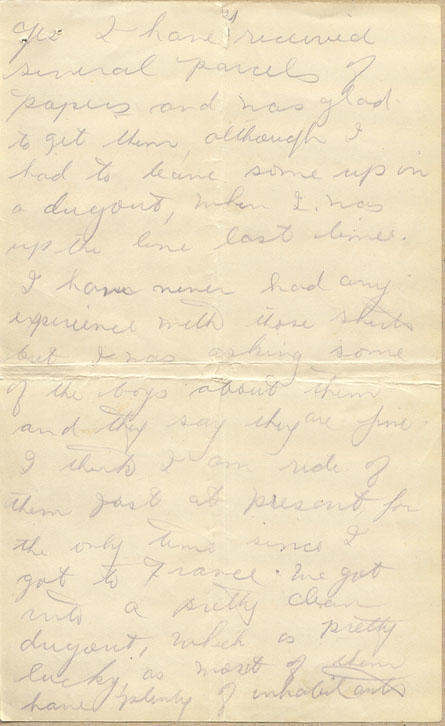 Yes I have received
several parcels of
papers and was glad
to get them, although I
had to leave some up in
a dugout, when I was
up the line last time.
I have never had any
experience with those shirts
but I was asking some
of the boys about them
and they say they are fine.
I think I am ride of
them just at present for
the only time since I
got to France. We got
into a pretty clean
dugout, which is pretty
lucky, as most of them
have plenty of inhabitants